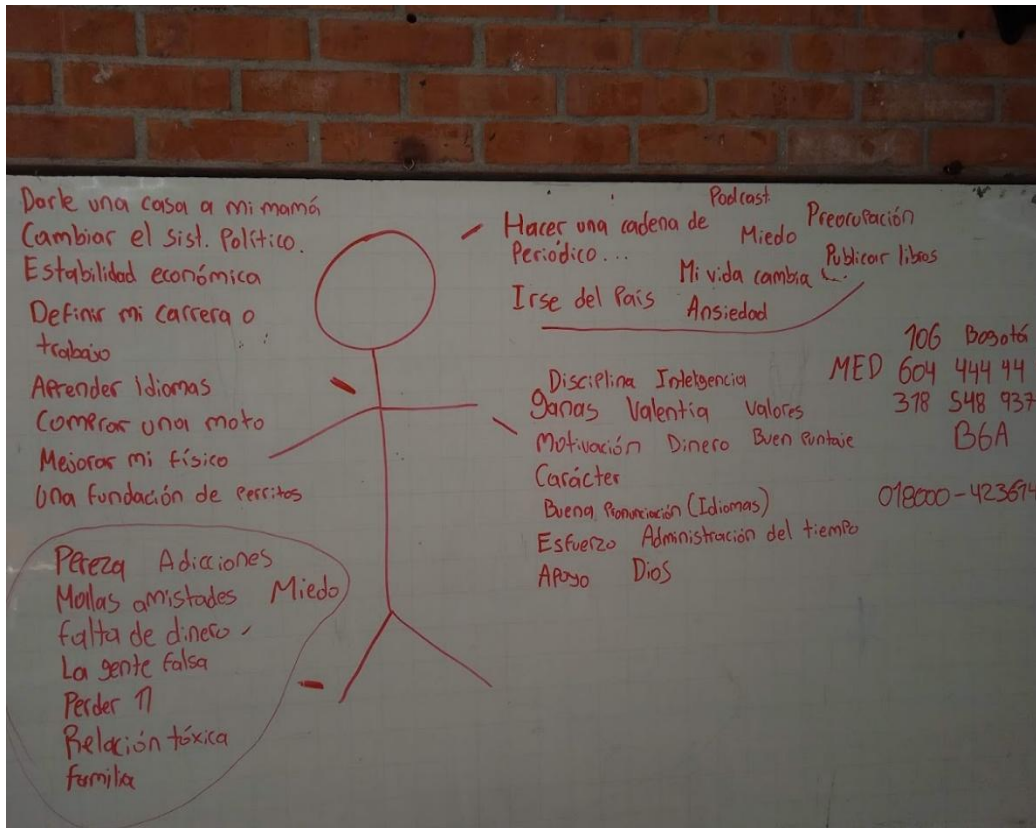 Darle una casa a mi mamá
Cambiar el Sist. Político.
Estabilidad económica
Definir mi carrera o
trabajo
Aprender idiomas
Comprar una moto
Mejorar mi físico
Una fundación de perritos
Pereza Adicciones
Mallas amistades Miedo
falta de dinero
La gente falsa
Perder 11
Relación tóxica
familia
Podcast
Hacer una cadena de Miedo Preocupación
Periódico...
Mi vida cambia Publicar libros
Irse del País Ansiedad
Disciplina Inteligencia
ganas Valentía Valores
Motivación Dinero Buen Puntaje
Carácter
Buena Pronunciación (Idiomas)
Esfuerzo Administración del tiempo
Apoyo Dios
106 Bogotá
MED 604 444 44
318 548 937
BGA
018000-423614